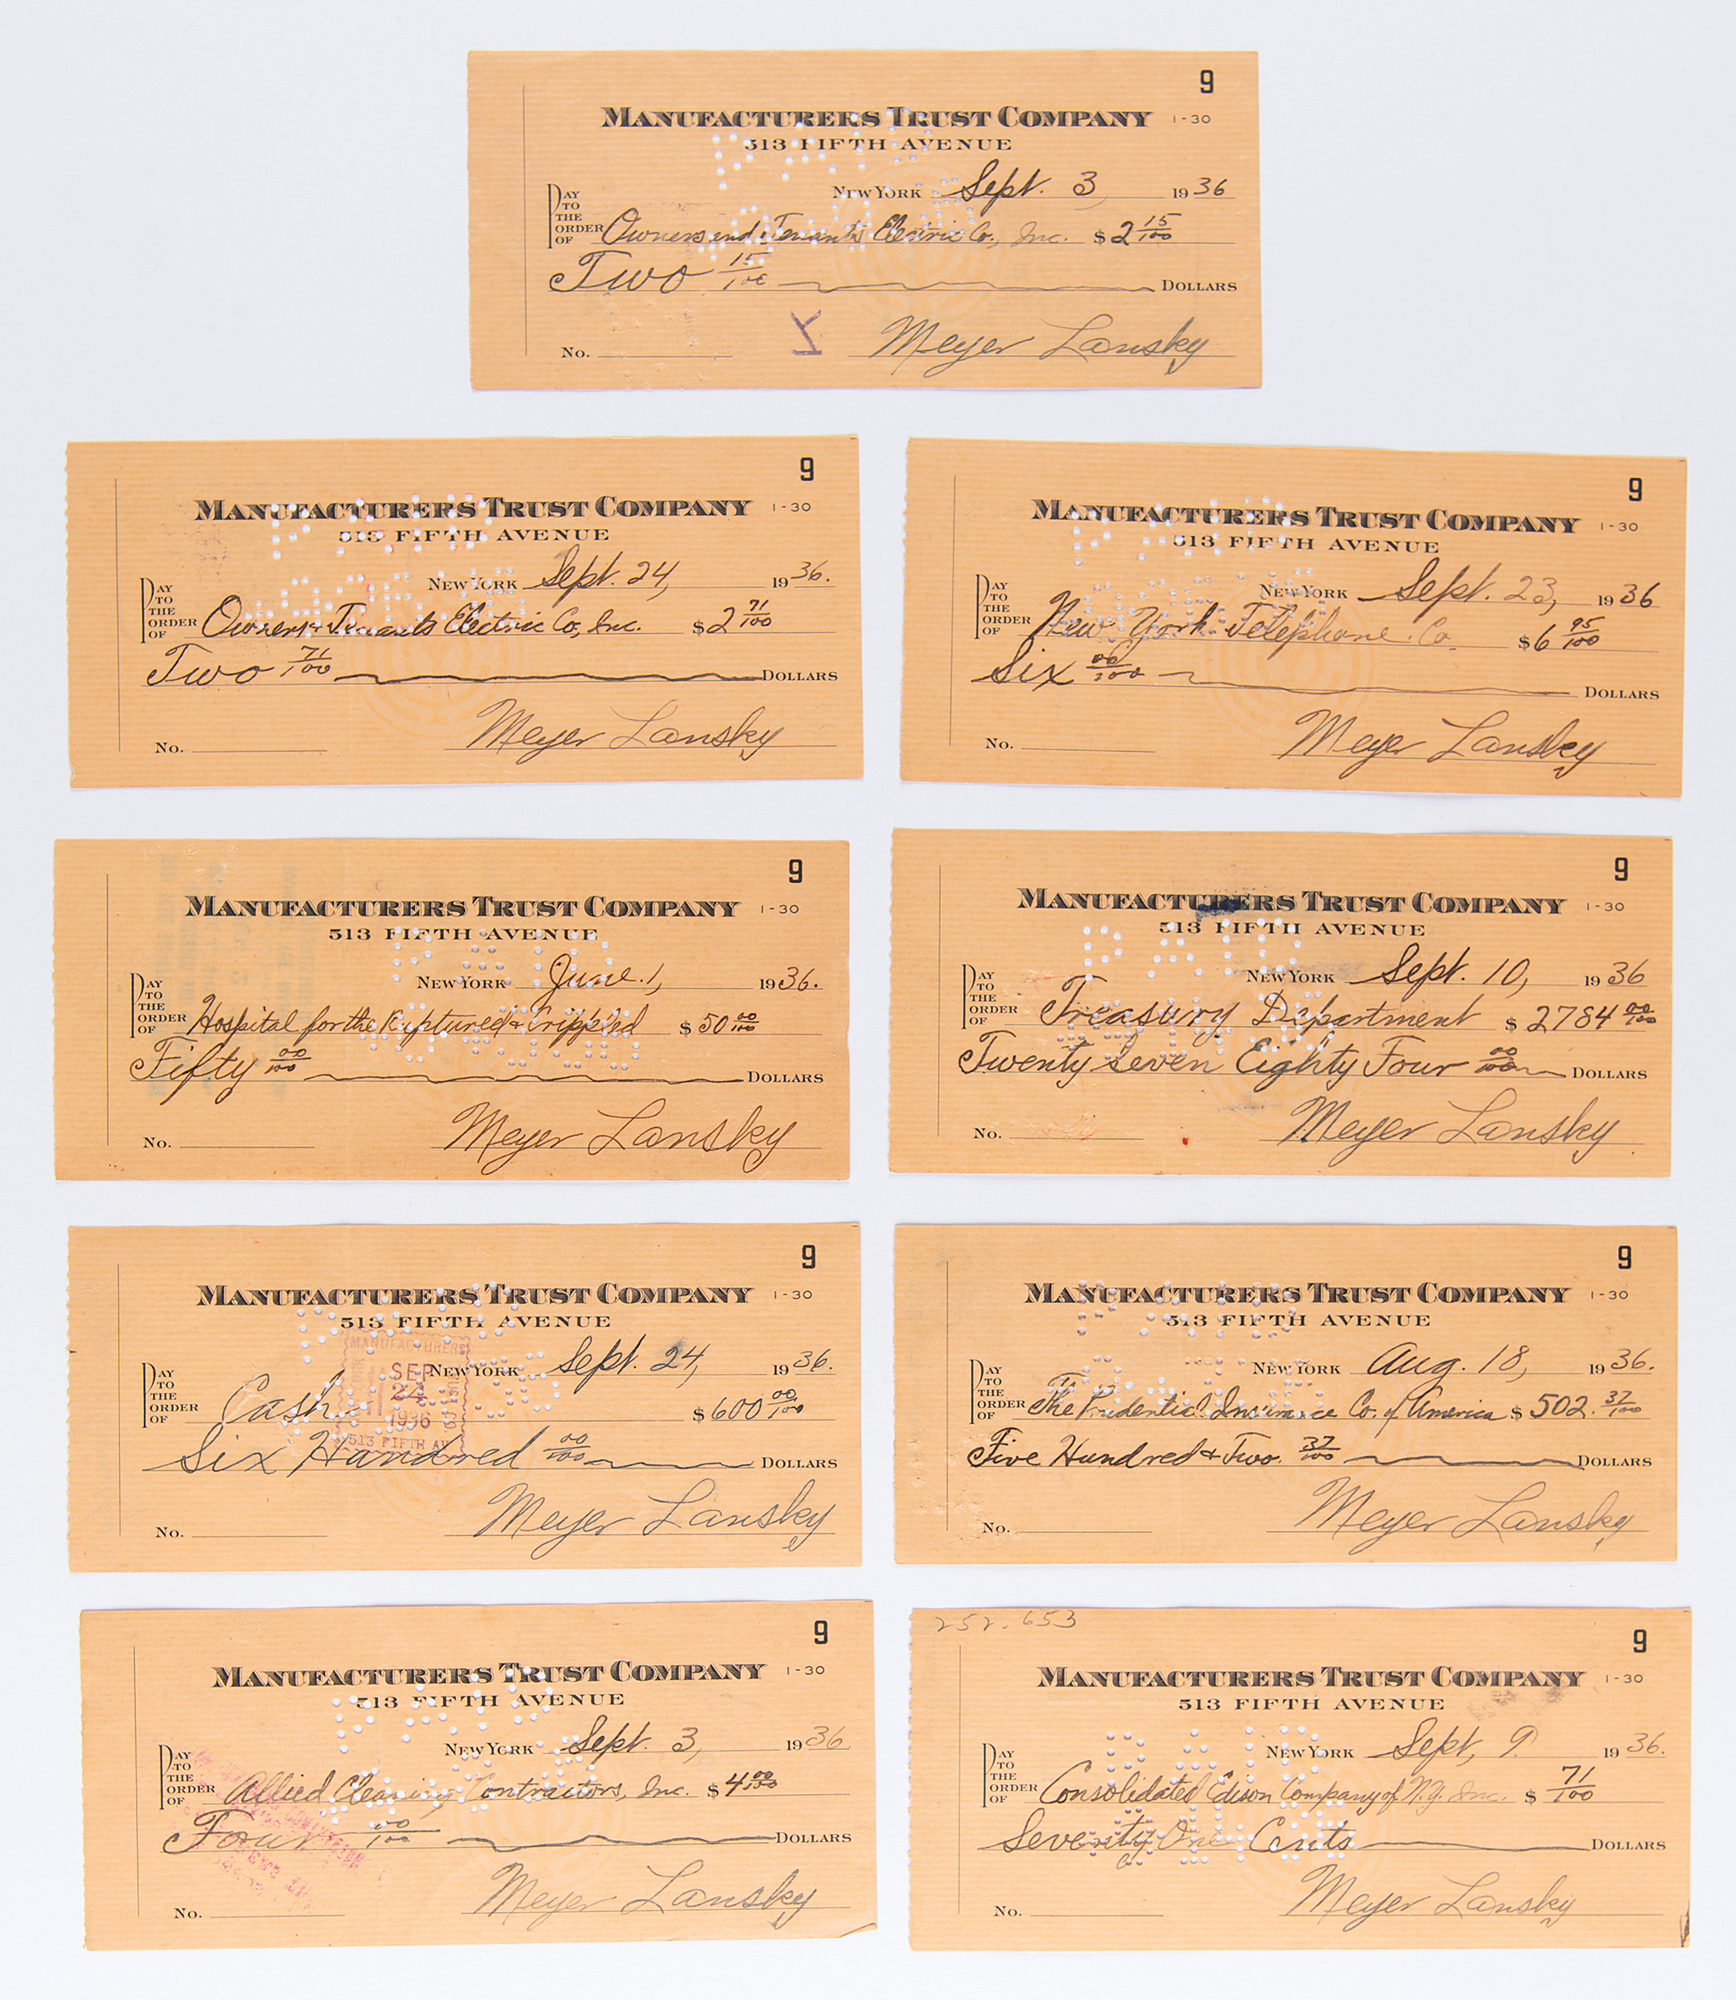 9
MANUFACTURERS TRUST COMPANY 1-30
513 FIFTH AVENUE
NEW YORK Sept. 3, 1936
PAY TO THE ORDER OF Owners and Tenants Electric Co., Inc. $2 15/100
Two 15/100 DOLLARS
No. Meyer Lansky
9
MANUFACTURERS TRUST COMPANY 1-30
513 FIFTH AVENUE
NEW YORK Sept. 24, 1936.
PAY TO THE ORDER OF Owners & Tenants Electric Co., Inc. $2 71/100
Two 71/100 DOLLARS
No. Meyer Lansky
9
MANUFACTURERS TRUST COMPANY 1-30
513 FIFTH AVENUE
NEW YORK Sept. 23, 1936
PAY TO THE ORDER OF New York Telephone Co. $6 95/100
Six 00/100 DOLLARS
No. Meyer Lansky
9
MANUFACTURERS TRUST COMPANY 1-30
513 FIFTH AVENUE
NEW YORK June 1, 1936.
PAY TO THE ORDER OF Hospital for the Ruptured & Crippled $50 00/100
Fifty 00/100 DOLLARS
No. Meyer Lansky
9
MANUFACTURERS TRUST COMPANY 1-30
513 FIFTH AVENUE
NEW YORK Sept. 10, 1936
PAY TO THE ORDER OF Treasury Department $2784 00/100
Twenty Seven Eighty Four 00/100 DOLLARS
No. Meyer Lansky
9
MANUFACTURERS TRUST COMPANY 1-30
513 FIFTH AVENUE
NEW YORK Sept. 24, 1936.
PAY TO THE ORDER OF Cash $600 00/100
Six Hundred 00/100 DOLLARS
No. Meyer Lansky
MANUFACTURERS
SEP
24
1936
513 FIFTH AV
9
MANUFACTURERS TRUST COMPANY 1-30
513 FIFTH AVENUE
NEW YORK Aug. 18, 1936.
PAY TO THE ORDER OF The Prudential Insurance Co. of America $502. 37/100
Five Hundred & Two 37/100 DOLLARS
No. Meyer Lansky
9
MANUFACTURERS TRUST COMPANY 1-30
513 FIFTH AVENUE
NEW YORK Sept. 3, 1936
PAY TO THE ORDER OF Allied Cleaning Contractors, Inc. $4 00/100
Four 00/100 DOLLARS
No. Meyer Lansky
252.653
9
MANUFACTURERS TRUST COMPANY 1-30
513 FIFTH AVENUE
NEW YORK Sept. 9. 1936.
PAY TO THE ORDER OF Consolidated Edison Company of N.Y. Inc. $ 71/100
Seventy One Cents DOLLARS
No. Meyer Lansky